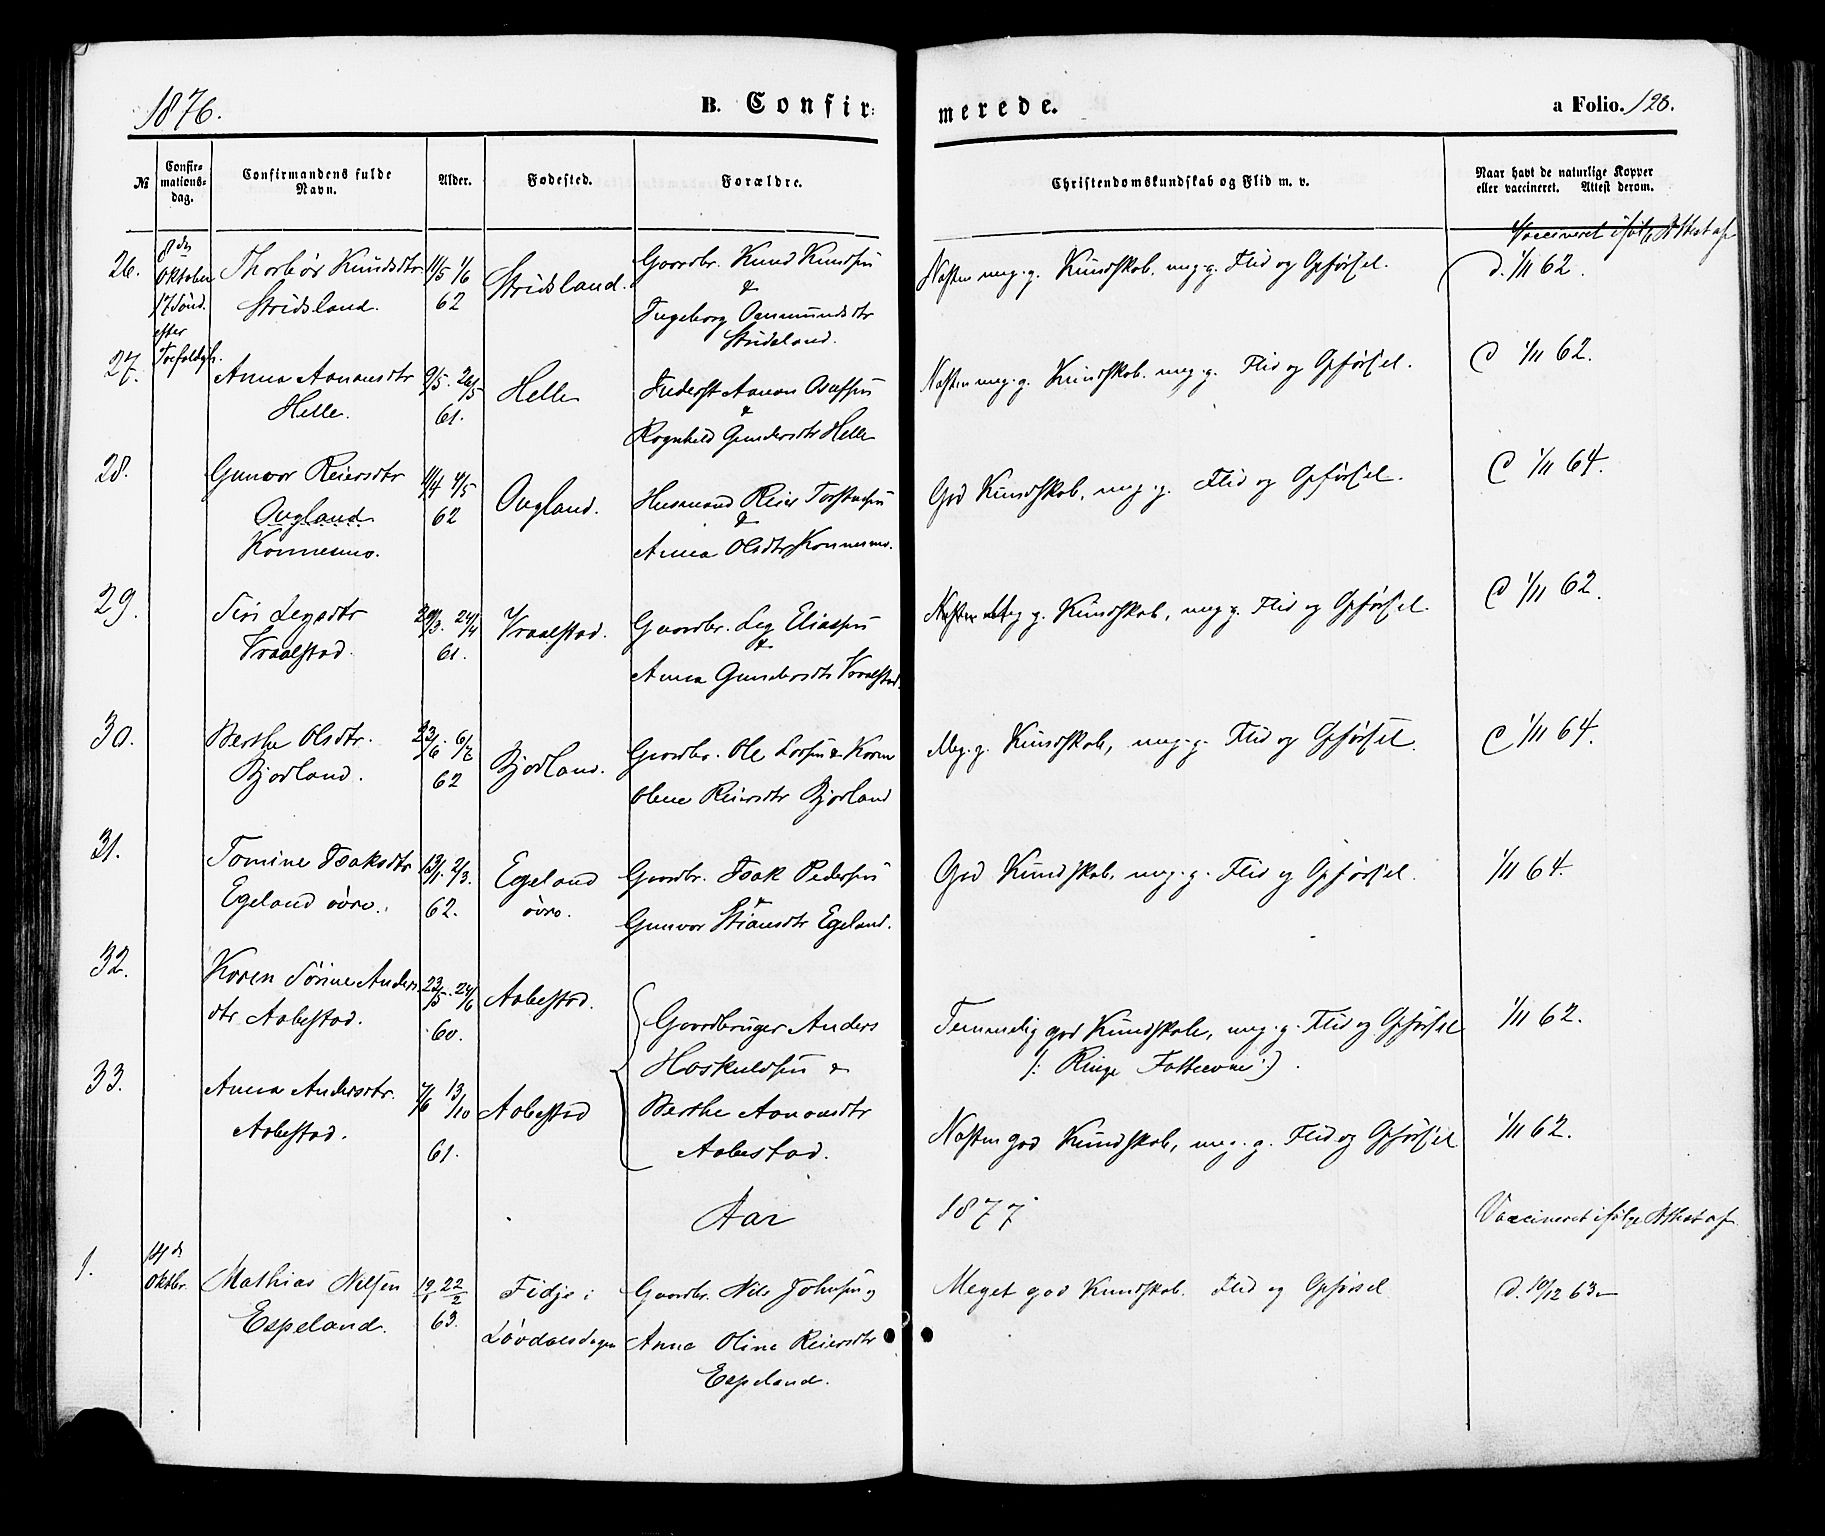 1876.
B. Confir-
merede.
a Folio. 128.
№
Confir-
mations-
dag.
Confirmandens fulde
Navn.
Alder.
Fødested.
Forældre.
Christendomskundskab og Flid m. v.
Naar havt de naturlige Kopper
eller vaccineret. Attest derom.
Vaccineret ifølg Attest af
26.
8de
Oktober
17 Sönd.
efter
Trefoldgh.
Thorbör Knudsdtr
Stridsland.
11/5 1/6
62
Stridsland.
Gaardbr. Knud Knudsen
&
Ingeborg Aanmundsdtr
Stridsland.
Næsten meg. g. Kundskab. meg. g. Flid og Opførsel.
d. 1/11 62.
27.
Anna Aanensdtr
Helle.
9/5. 26/5
61.
Helle
Inderst Aanon
&
Ragnhild Gundersdtr Helle
Næsten meg. g. Kundskab. meg. g. Flid og Opførsel.
d 1/11 62.
28.
Gunvor Reiersdtr
Augland
Konnesmo.
11/4 4/5
62
Augland.
Husmand Reier Torstensen
&
Anna Olsdtr Konnesmo.
God Kundskab, meg. g. Flid og Opførsel.
d 1/11 64.
29.
Siri Legsdtr
Vraalstad.
29/3. 24/4
61.
Vraalstad.
Gaardbr. Leg Eliassen
&
Anna Gundersdtr Vraalstad.
Næsten meg g. Kundskab, meg g. Flid og Opførsel.
d 1/11 62.
30.
Berthe Olsdtr.
Bjorland.
23/6. 6/7
62
Bjorland.
Gaardbr. Ole Larsen & Karen
Olene Reiersdtr Bjorland
Meg. g. Kundskab, meg. g. Flid og Opførsel.
d 1/11 64.
31.
Tomine Isaksdtr
Egeland övre.
13/1. 2/3.
62.
Egeland
övre.
Gaardbr. Isak Pedersen
&
Gunvor Stiansdtr Egeland.
God Kundskab, meg. g. Flid og Opførsel.
1/11 64.
32.
Karen Sörine Anders
dtr Aabestad.
23/5. 24/6
60.
Aabestad.
Gaardbruger Anders
Haskuldsen &
Berthe Aanonsdtr
Aabestad.
Temmelig god Kundskab, meg. g. Flid og Opførsel
/: Ringe Fatteevne :/.
1/11 62.
33.
Anna Andersdtr.
Aabestad.
7/6 13/10
61.
Aabestad
Næsten god Kundskab, meg. g. Flid og Opførsel
1/11 62.
Aar
1877
Vaccineret ifølge Attest af
1.
14d
Oktbr.
Mathias Nilsen
Espeland.
19/1 22/2
63.
Fidje i
Lövdalsdagen
Gaardbr. Nils Johnsen og
Anne Oline Reiersdtr
Espeland.
Meget god Kundskab. Flid og Opførsel
d. 19/12 63